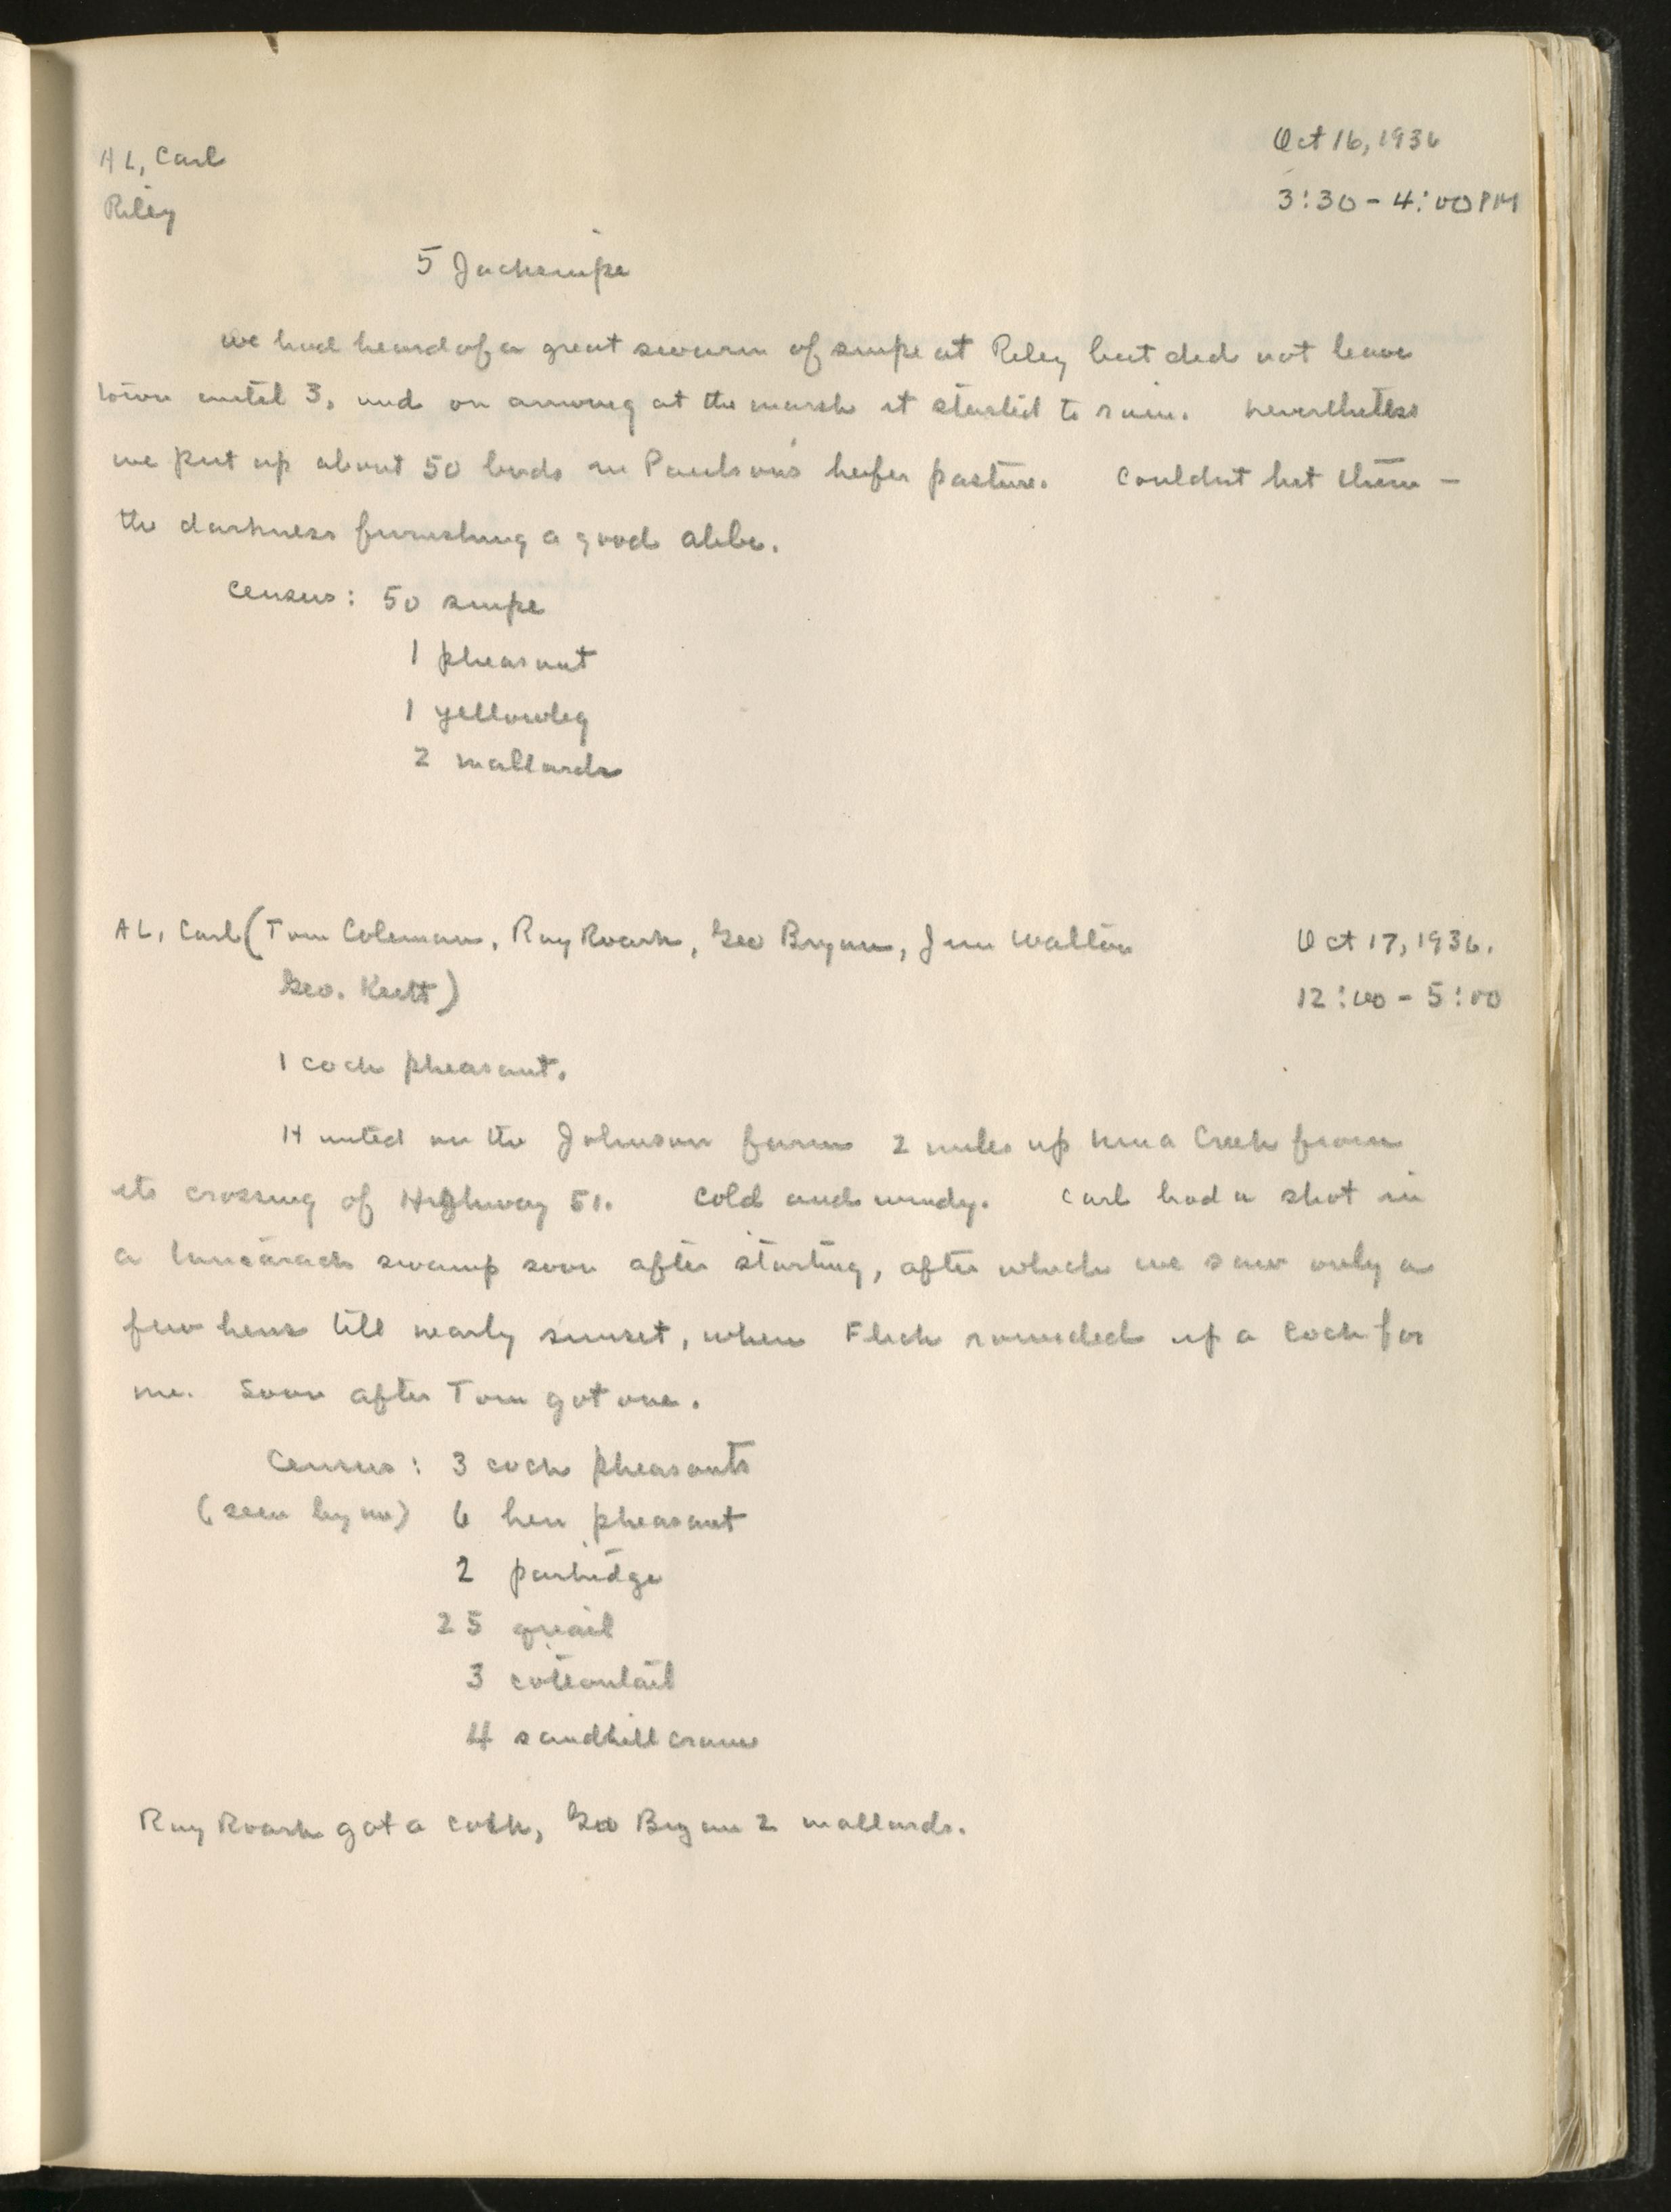 AL, Carl
Riley
Oct 16, 1936
3:30 - 4:00 PM
5 Jacksnipe
we had heard of a great swarm of snipe at Riley but did not leave
town until 3, and on arriving at the marsh it started to rain. Nevertheless
we put up about 50 birds in Paulson's heifer pasture. Couldnt hit them -
the darkness furnishing a good alibi.
Census: 50 snipe
1 pheasant
1 yellowleg
2 mallards
AL, Carl (Tom Coleman, Ray Roark, Geo Bryan, Jim Walton
Geo. Keitt)
Oct 17, 1936.
12:00 - 5:00
1 cock pheasant.
Hunted on the Johnson farm 2 miles up Creek from
its crossing of Highway 51. Cold and windy. Carl had a shot in
a tamarack swamp soon after starting, after which we saw only a
few hens till nearly sunset, when Flick rounded up a cock for
me. Soon after Tom got one.
Census: 3 cock pheasants
(seen by me) 6 hen pheasant
2 partridge
25 quail
3 cottontail
4 sandhill crane
Ray Roark got a cock, Geo Bryan 2 mallards.